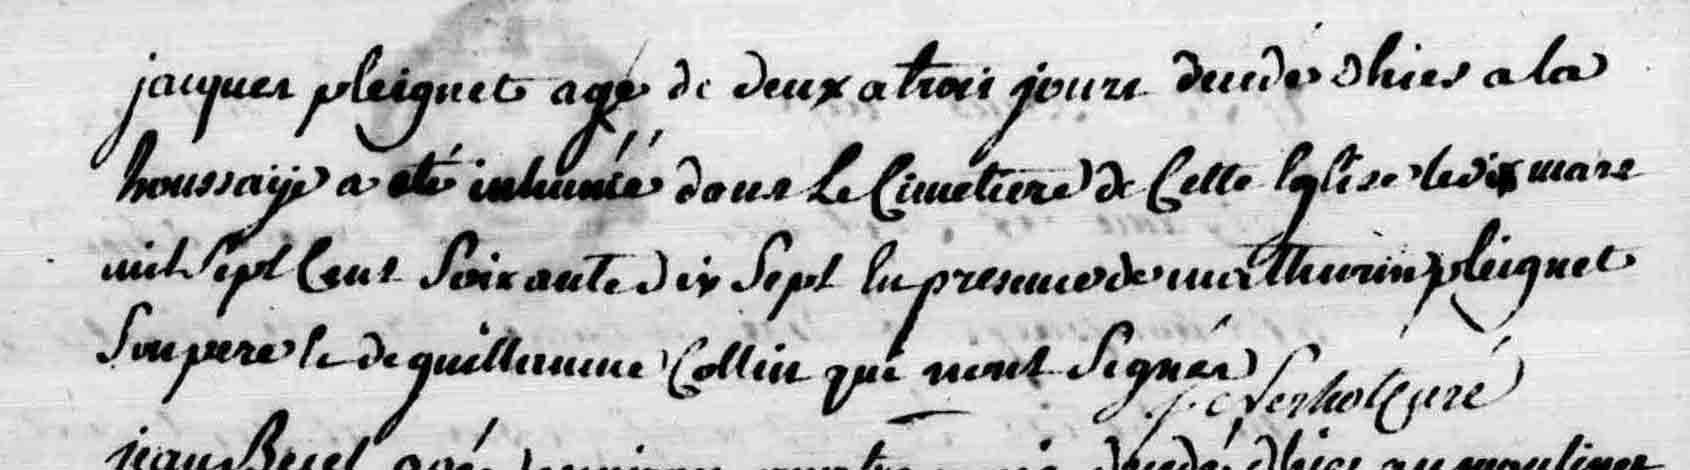 jacques pleignet agé de deux a trois jours decedé dhier a la
houssaije a eté inhumée dans Le Cimetiere de Cette Eglise le dix mars
mil Sept Cent Soixante dix Sept En presence de mathurin pleignet
Son pere Et de guillaume Collin qui nont Signés
Curé
jean agé denviron quatre decedé dhier au moulines